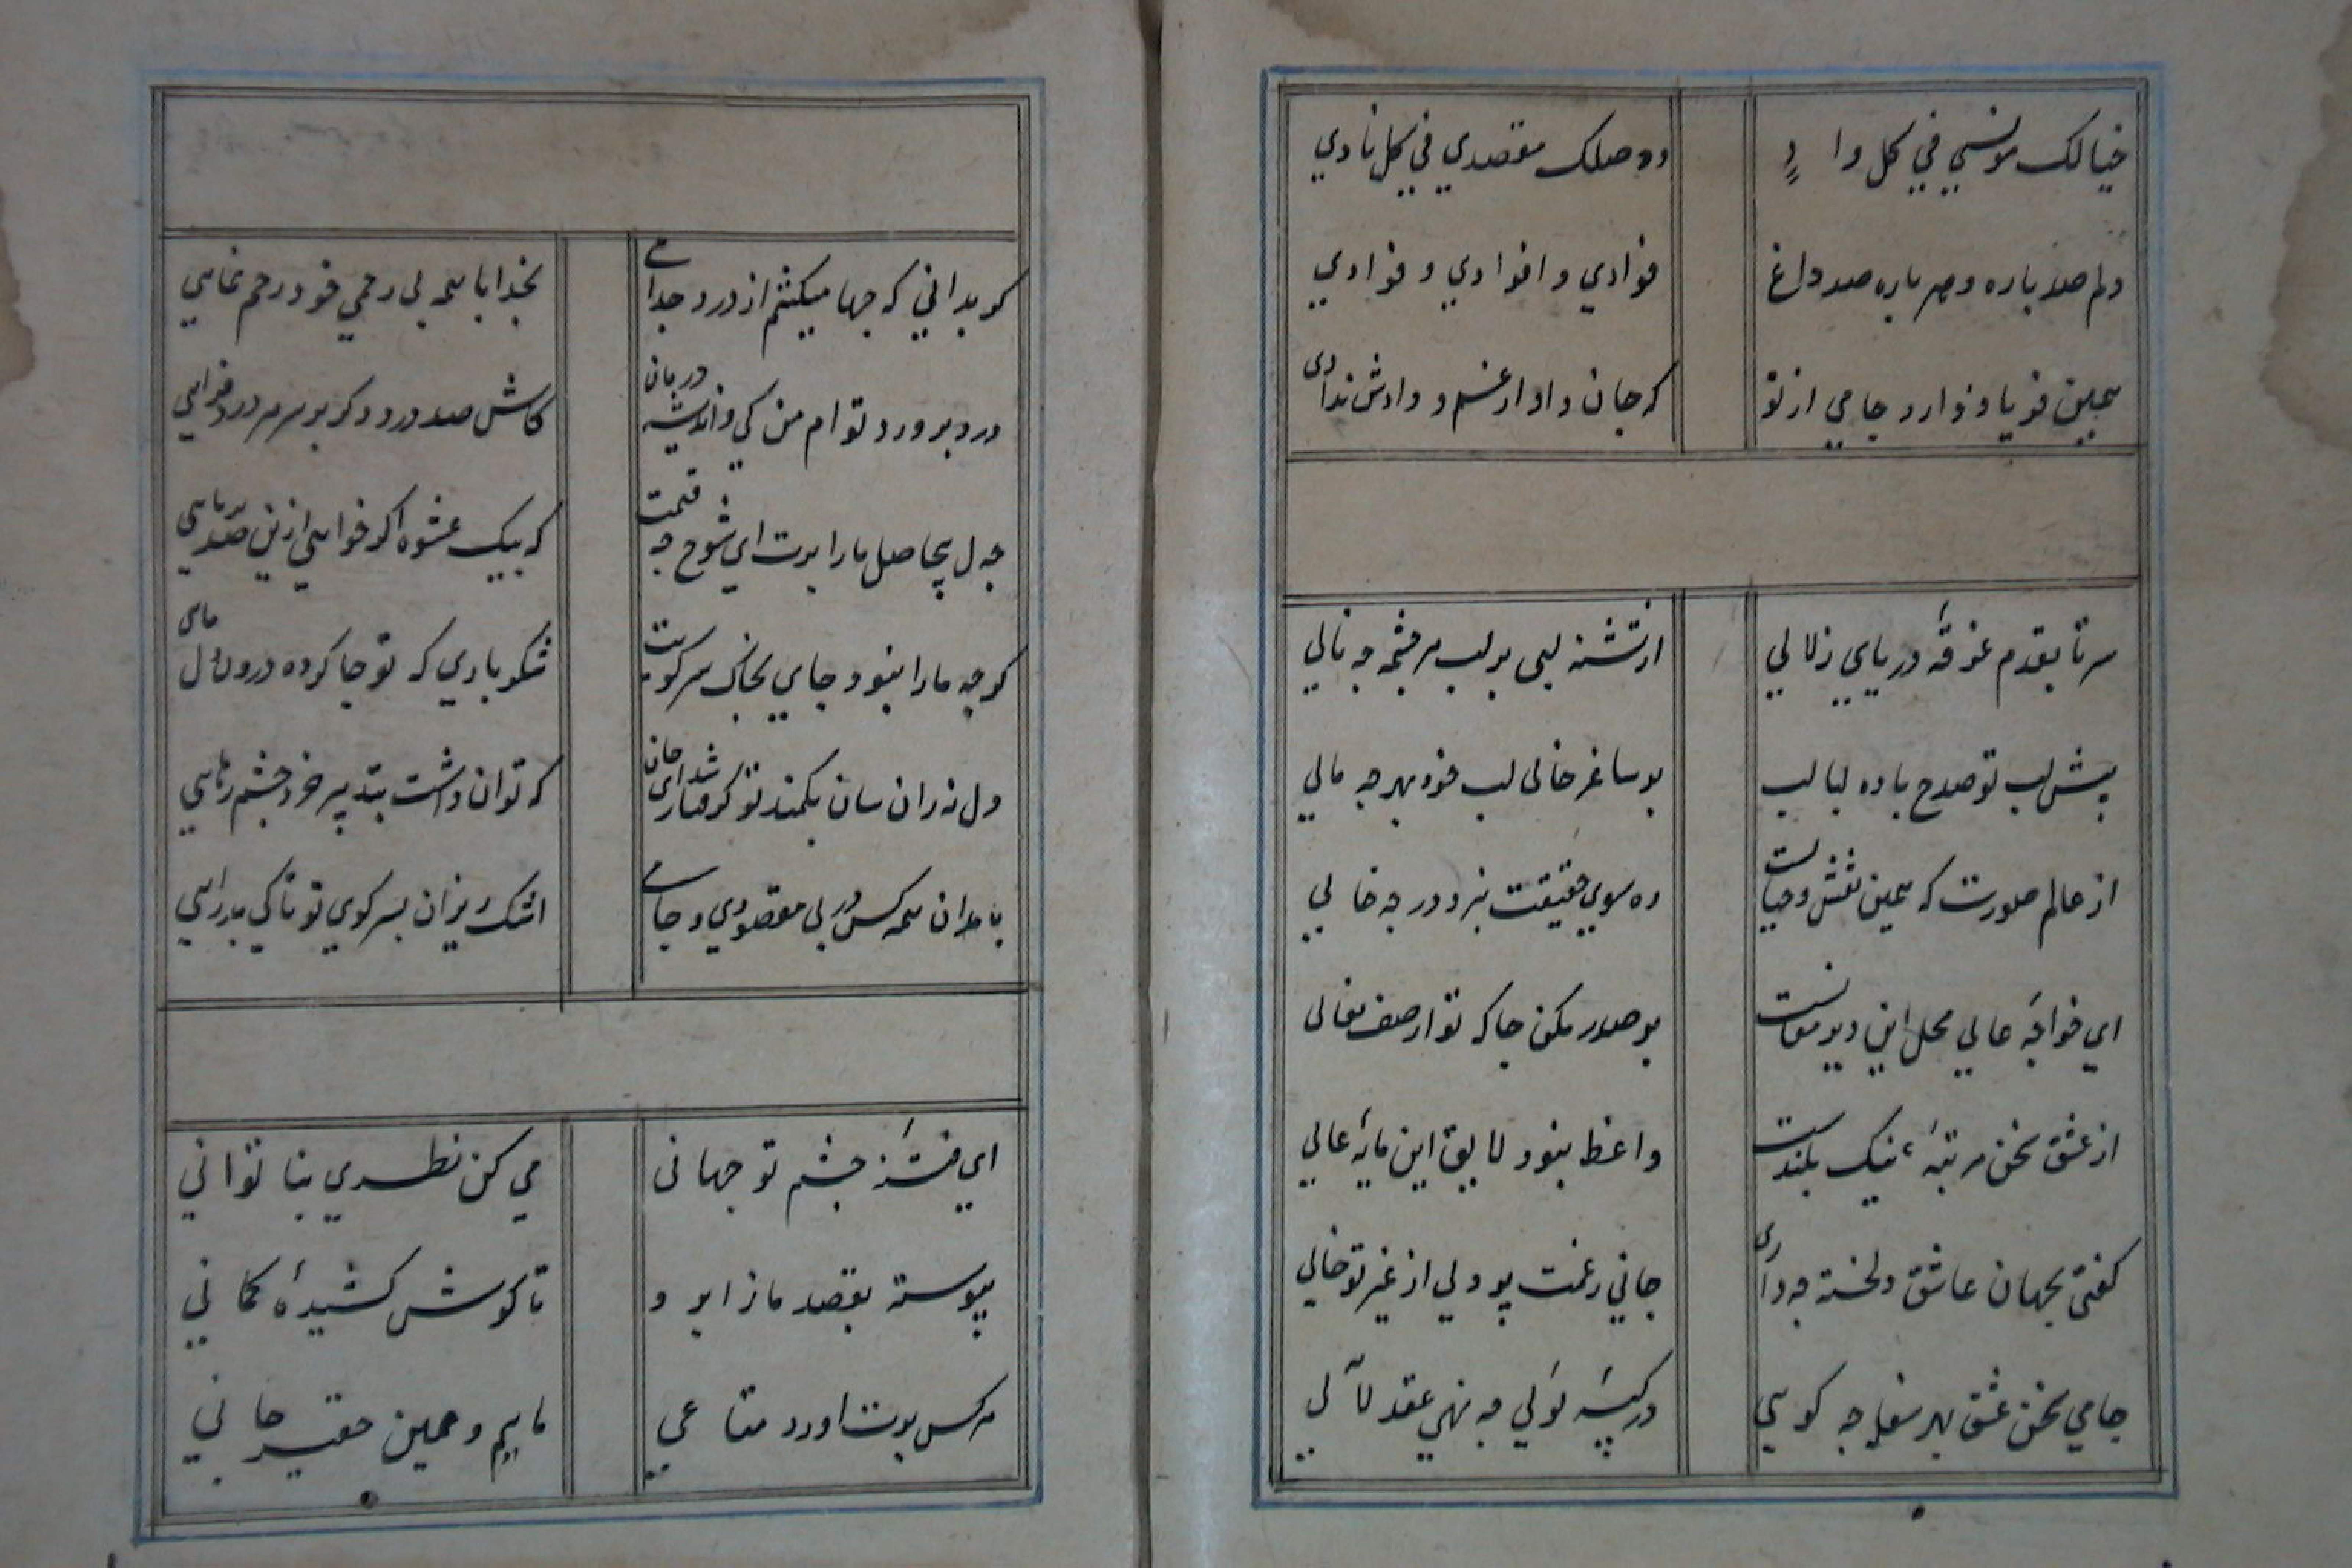 خيالك مونسي في كل واد ووصلك مقصدي في كل نادي
دلم صد پاره و هر پاره صد داغ فوادي وا فوادي وا فوادي
همين فرياد دارد جامي از تو که جان داد از غم و دادش ندادی
سر تا بقدم غرقهٔ درياي زلالي از تشنه لبی بر لب هر چشمه چه نالي
پيش لب تو صد قدح باده لبالب بر ساغر خالی لب خود بهر چه مالي
از عالم صورت که همين نقش و خيالست ره سوي حقيقت نبرد در چه خيالي
اي خواجهٔ عالي محل اين دير مغانست بر صدر مکن جا که تو از صف نعالی
از عشق سخن مرتبهٔ نيک بلندست واعظ نبود لايق اين مايهٔ عالي
گفتی بجهان عاشق دلخسته چه داری جاني ز غمت پر و دلي از غير تو خالي
جامي سخن عشق بهر سفله چه گويي در کيسهٔ لولي چه نهي عقد لآلي
گر بداني که چها ميکشم از درد جدايي بخدا با همه بي رحمي خود رحم نمايي
درد بر درد توام من کي و انديشه درمان کاش صد درد دگر بر سر هر درد فزايي
چه دل بيحاصل ما را برت اي شوخ چه قيمت که بيک عشوه اگر خواهي ازين صد بربايي
گرچه ما را نبود جاي بخاک سر کويت شکر باري که تو جا کرده درون دل مايي
دل نه زان سان بکمند تو گرفتار شد اي جان که توان داشت بتدبير خرد چشم رهايي
بامدادان همه کس در پي مقصودي و جامي اشک ريزان بسر کوي تو تا کي بدر آيي
اي فتنهٔ چشم تو جهاني مي کن نظري بناتواني
پيوسته بقصد ما ز ابرو تا گوش کشيدهٔ کماني
هر کس برت اورد متاعي ماييم و همين حقير جاني